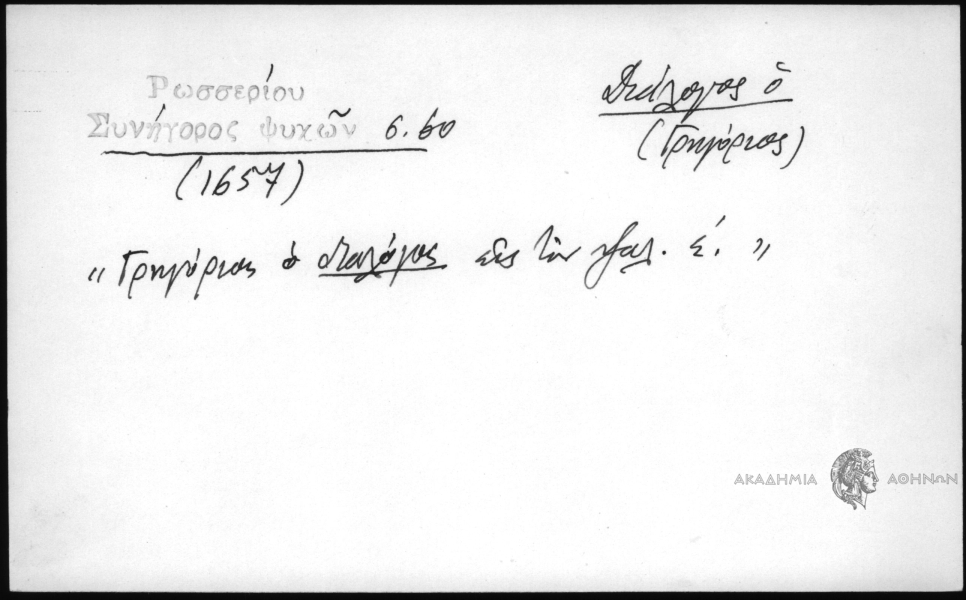 Ρωσσερίου
Συνήγορος ψυχῶν σ. 60
(1657)
Διάλογος ὁ
(Γρηγόριος)
„ Γρηγόριος ὁ διαλόγος εἰς τὸν ψαλ. ς΄. „
ΑΚΑΔΗΜΙΑ ΑΘΗΝΩΝ